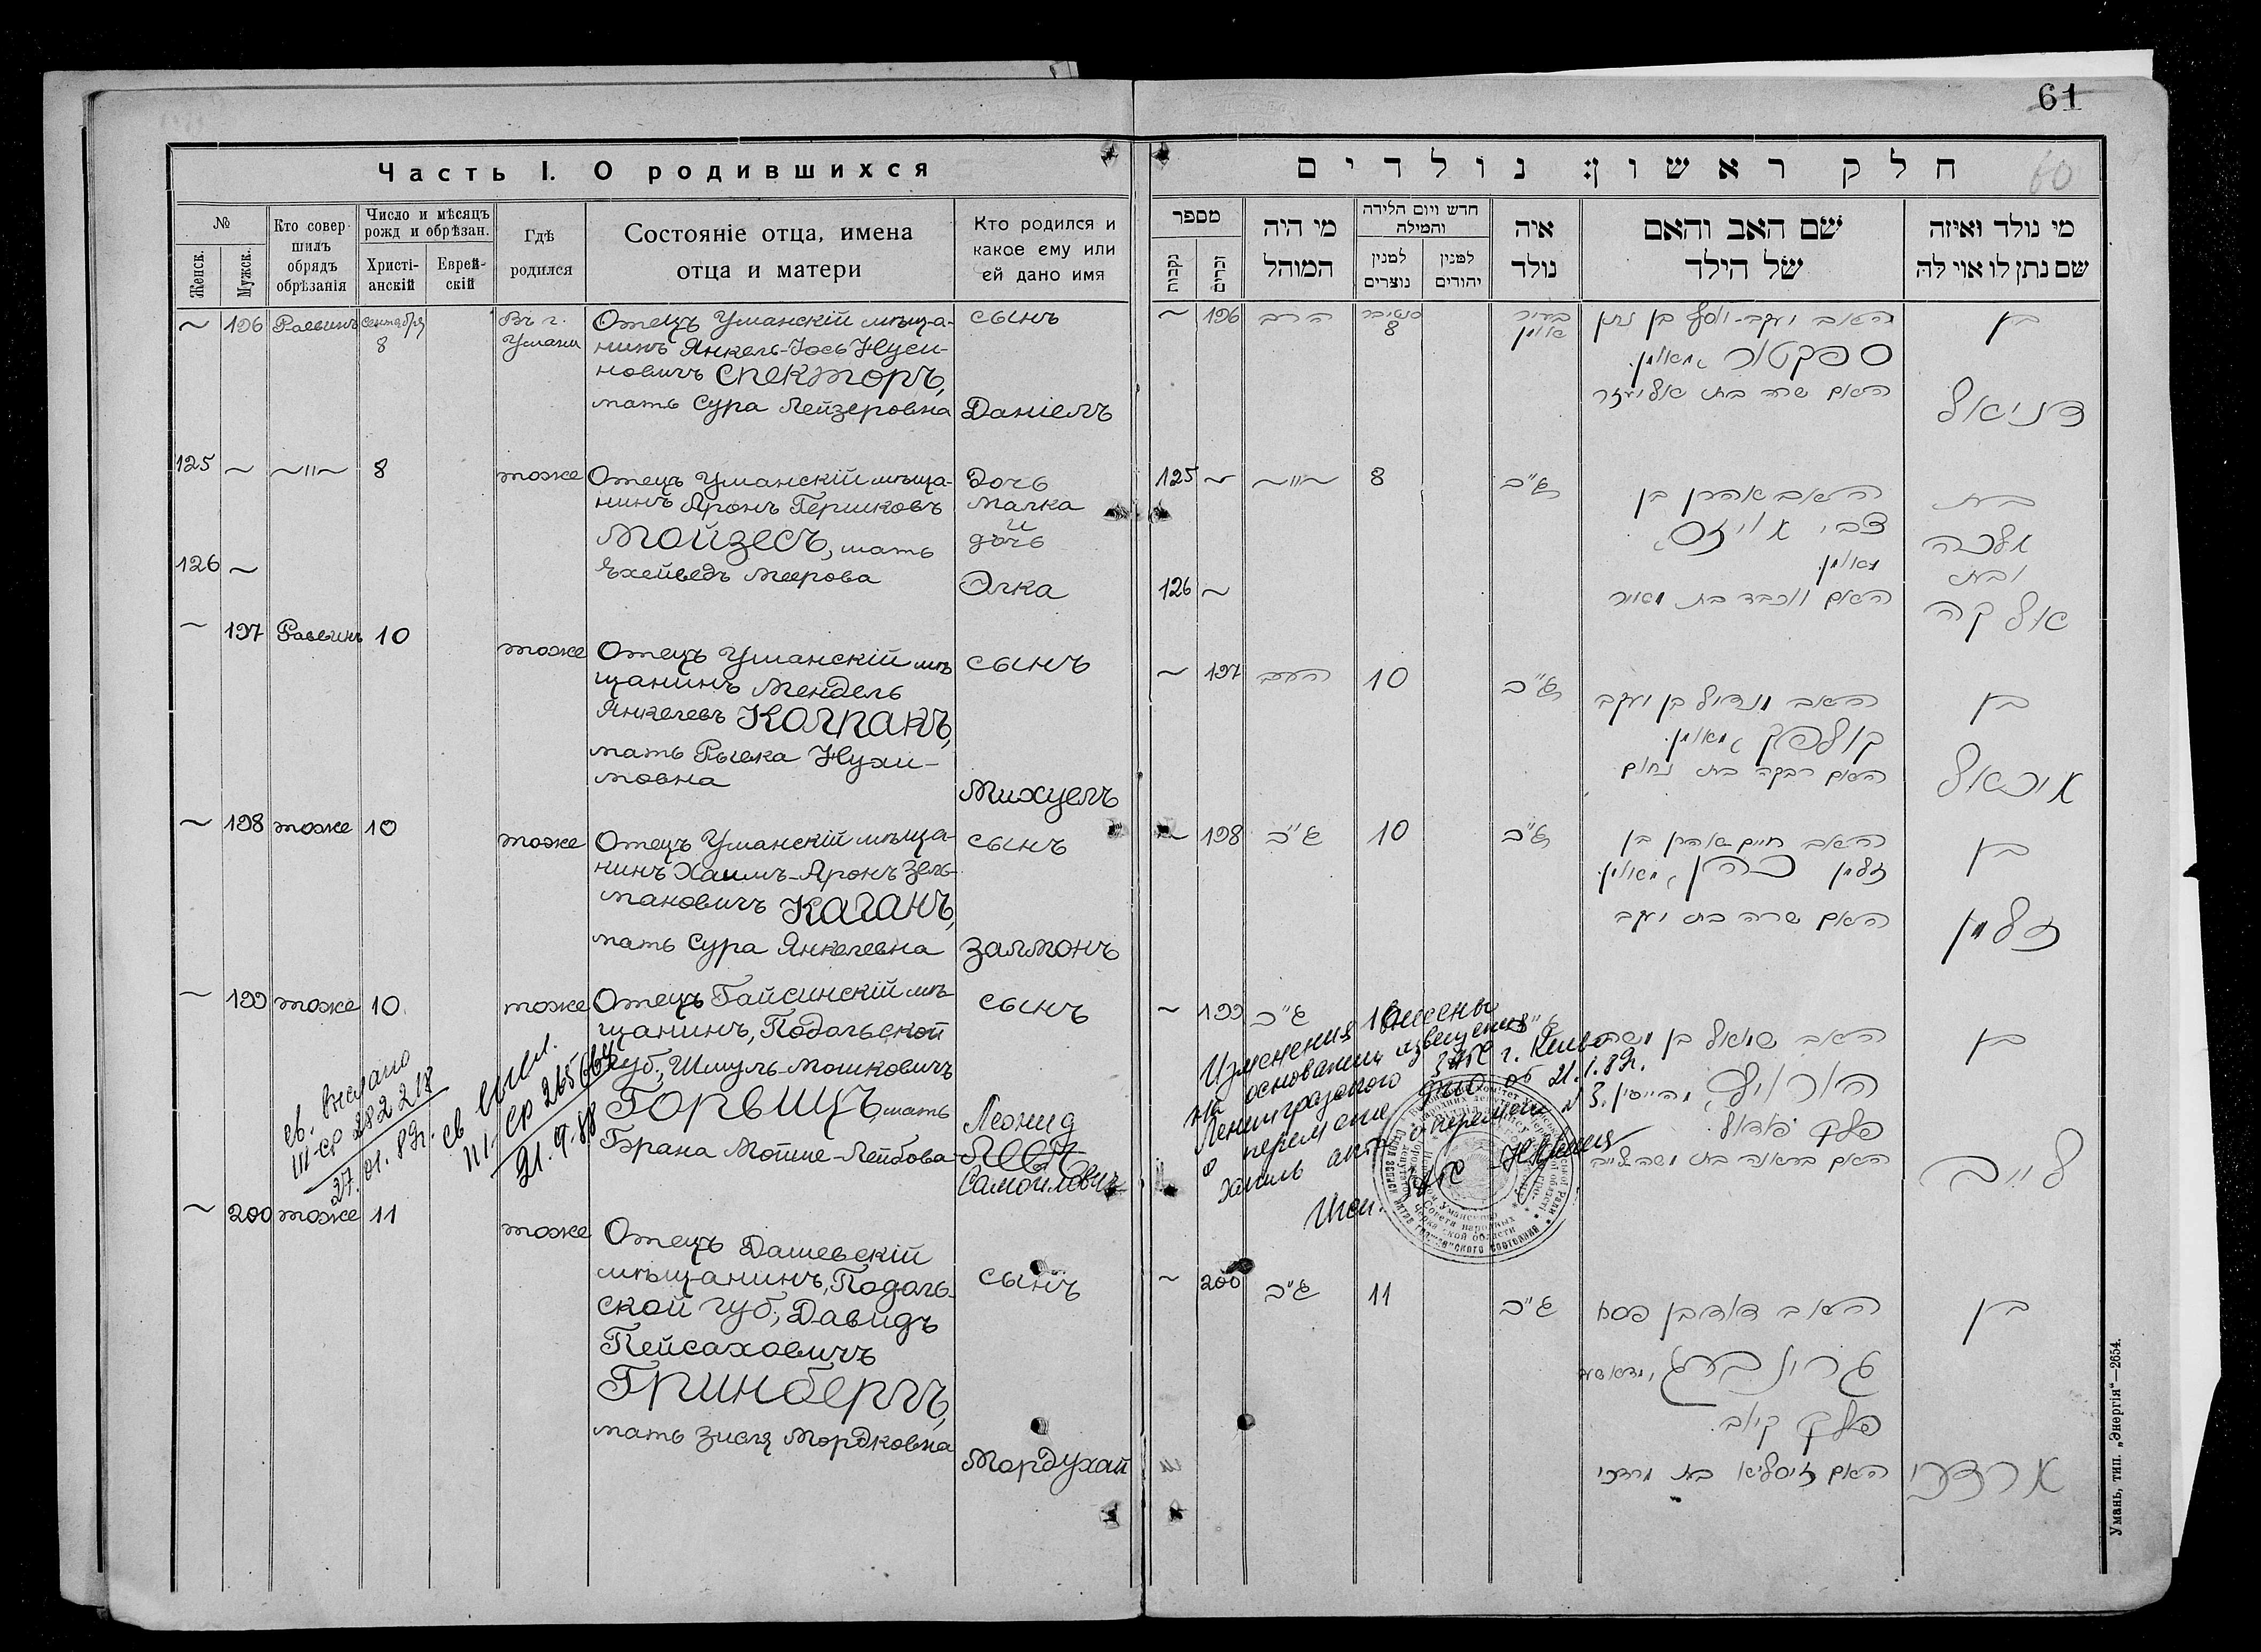 61
60
Часть I. О родившихся
№
Женск.
Мужск.
Кто совер-
шилъ
обрядъ
обрѣзанія
Число и мѣсяцъ
рожд и обрѣзан.
Христі-
анскій
Еврей-
скій
Гдѣ
родился
Состояніе отца, имена
отца и матери
Кто родился и
какое ему или
ей дано имя
~ 196 Раввинъ сентября
8
Въ г.
Умани
Отецъ Уманскій мѣща-
нинъ Янкель-Іось Нуси-
новичъ Спекторъ,
мать Сура Лейзеровна
сынъ
Даніелъ
125 ~ ~"~ 8 тоже
Отецъ Уманскій мѣща-
нинъ Аронъ Гершковъ
Мойзесъ, мать
Іхейведъ Меерова
Дочь
Малка
и
дочь
Элка
126 ~
~ 197 Раввинъ 10 тоже
Отецъ Уманскій мѣ
щанинъ Мендель
Янкелевъ Колпакъ,
мать Рывка Нухи-
мовна
сынъ
Михуелъ
~ 198 тоже 10 тоже
Отецъ Уманскій мѣща-
нинъ Хаимъ-Аронъ Зель-
мановичъ Каганъ,
мать Сура Янкелевна
сынъ
Залмонъ
~ 199 тоже 10 тоже
Отецъ Гайсинскій мѣ-
щанинъ, Подольской
губ., Шмуль-Мошковичъ
Горвицъ, мать
Брана Мошие-Лейбова
сынъ
Леонид
Самойлович
св.
III-ср 282 218
27.01.89г.
св
21.9.88
~ 200 тоже 11 тоже
Отецъ Дашевскій
мѣщанинъ, Подоль-
ской губ., Давидъ
Пейсаховичъ
Гринбергъ,
мать Зисля Мордковна
сынъ
Мордухай
חלק ראשון: נולדים
מספר
נקבות
זכרים
מי היה
המוהל
חדש ויום הלידה
והמילה
למנין
נוצרים
למנין
יהודים
איה
נולד
שם האב והאם
של הילד
מי נולד ואיזה
שם נתן לו אוי לה
~ 196 הרב
8
בעיר
אומן
האב יעקב-יוסף בן נתן
ספקטור, מאומן.
האם שרה בת אליעזר
בן
דניאל
125 ~ ~"~ 8 ג"כ
האב אהרן בן
צבי מויזס,
מאומן.
האם יוכבד בת מאיר
בת
מלכה
ובת
אלקה
126 ~
~ 197 הרב 10 ג"כ
האב מנדיל בן יעקב
קולפק, מאומן.
האם רבקה בת נחום
בן
מיכאל
~ 198 ג"כ 10 ג"כ
האב חיים אהרן בן
זלמן כהן, מאומן.
האם שרה בת יעקב
בן
זלמן
~ 199 ג"כ 10
האב שמואל בן משה
הורויץ, מהייסין.
פלך פאדאל.
בן
לייב
Изменения внесены
на основании извещения
Ленинградского ЗАГС г. Киева
о перемене от 21.1.89г.
ЗАГС
~ 200 ג"כ 11 ג"כ
האב דוד בן פסח
גרינברג,
פלך קיוב.
האם זיסליא בת מרדכי
בן
מרדכי
Умань, тип. „Энергія"—2654.